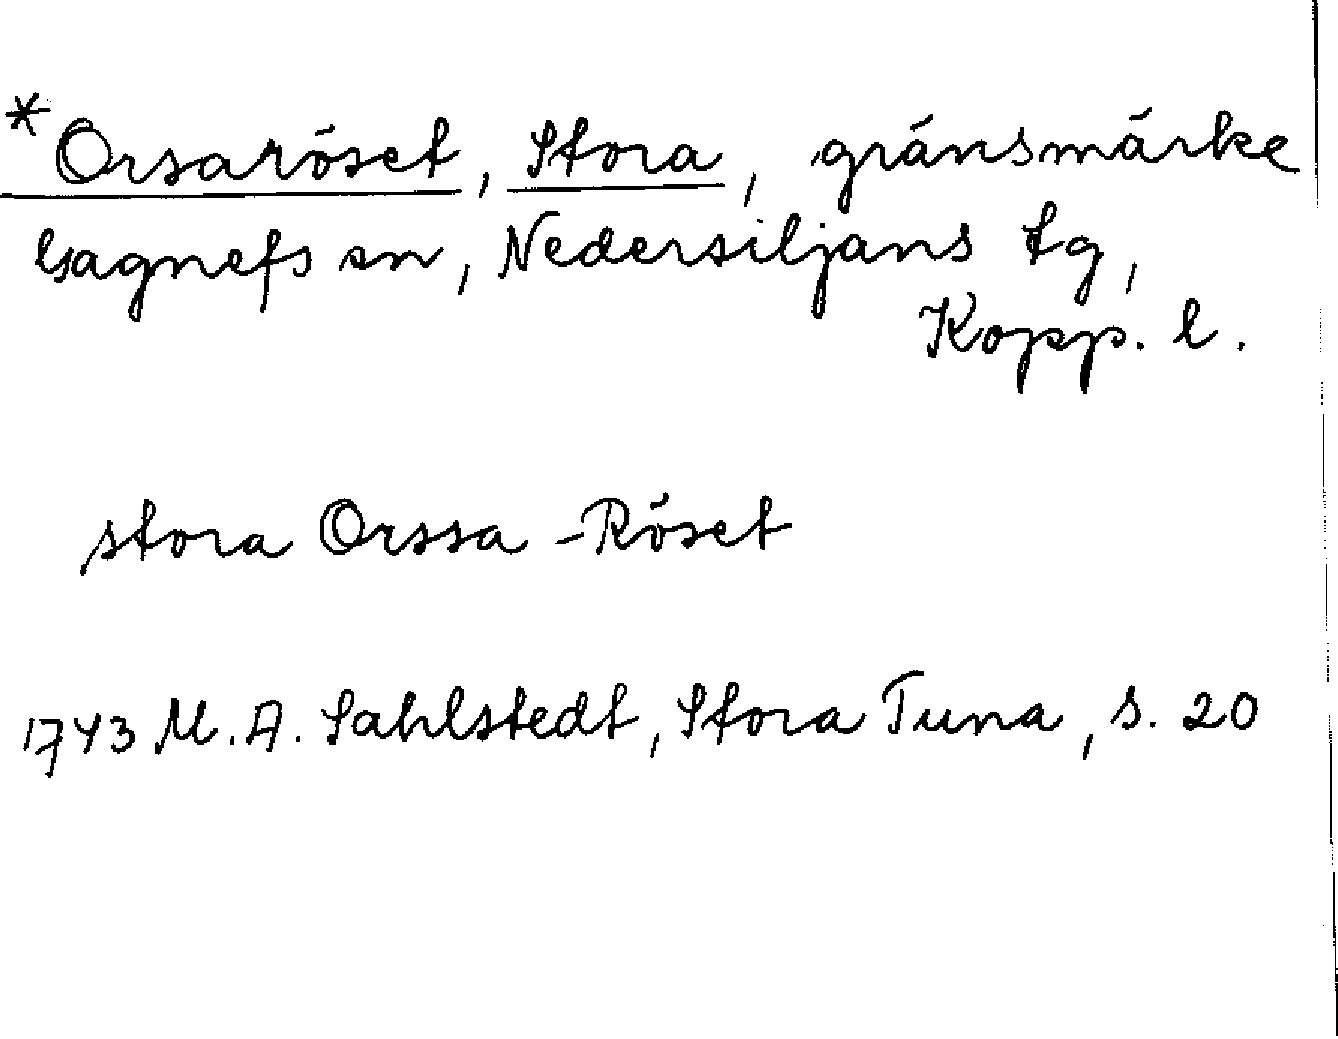 *Orsaröset, Stora, gränsmärke
Gagnefs sn, Nedersiljans tg,
Kopp. l.
stora Orssa-Röset
1743 M.A. Sahlstedt, Stora Tuna, s. 20